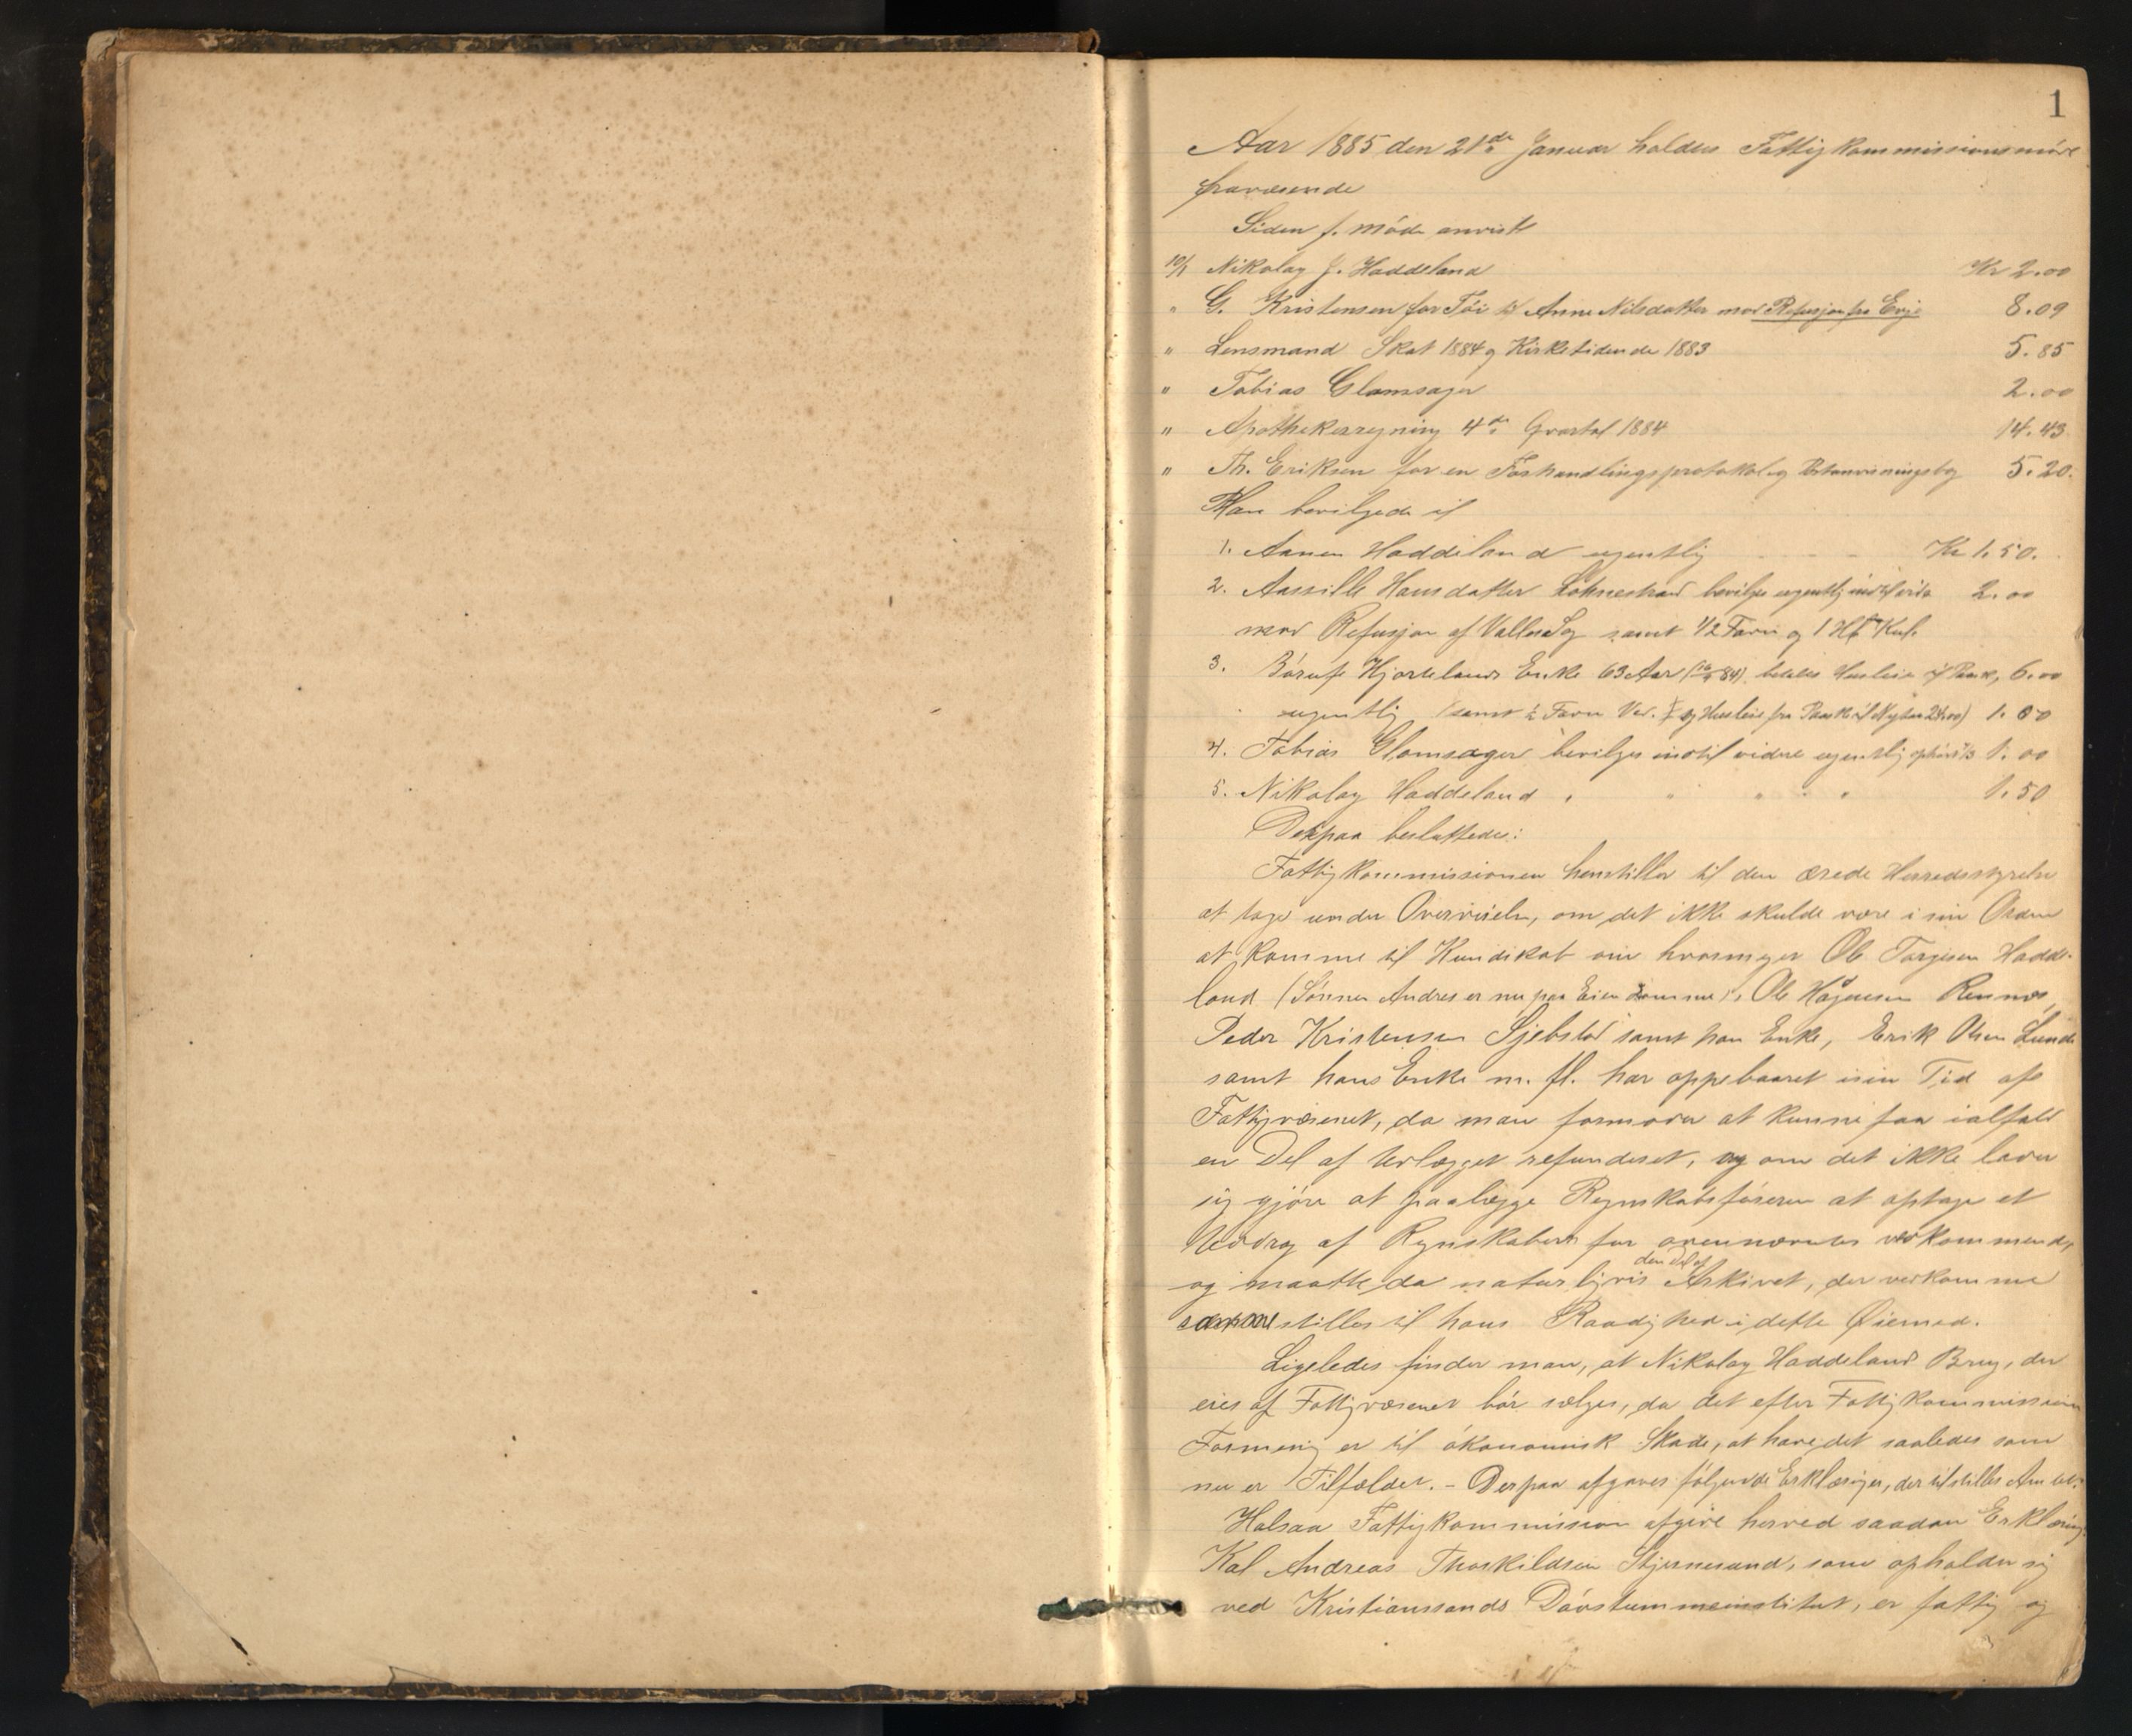 1
Aar 1885 den 21de Januar holdtes Fattigkommissionsmöde
fraværende
Siden f. möde anvist
10/1 Nikolay J. Haddeland Kr 2.00
" G. Kristensen for Töi til Anne Nilsdatter mod Refusjon fra Evje 8.09
" Lensmand Skat 1884 og Kirketidende 1883 5.85
" Tobias Glamsager 2.00
" Apothekerregning 4de Qvartal 1884 14.43
" Th. Eriksen for en Forhandlingsprotokol og Postanvisningsbog 5.20.
Man bevilgede til
1. Aanen Haddeland ugentlig Kr 1.50.
2. Aasille Hansdatter bevilges ugentlig indtil vidre 2.00
mod Refusjon af Valle Sog samt 1/2 Favn og 1 Kul.
3. Hjortelands Enke 63 Aar betales Husleie til Paask, 6.00
ugentlig (samt 1/2 Favn Ved. og Husleie fra Paaske til Nytaar) 1.00
4. Tobias Glomsager bevilges indtil vidre ugentlig 1.00
5. Nikolay Haddeland " " " " 1.50
Derpaa besluttedes:
Fattigkommissionen henstiller til den ærede Herredsstyrelse
at tage under Overveielse, om det ikke skulde være i sin Orden
at komme til Kundskab om hvormeget Ole Torgesen Hadde-
land (Sönnen Andres er nu paa Eiendomme), Ole Hågensen Rennæs,
Peder Kristensen Sjebstad samt han Enke, Erik Olsen Lunde
samt hans Enke m. fl. har oppebaaret i sin Tid af
Fattigvæsenet, da man formoder at kunne faa ialfald
en Del af Udlægget refunderet, og om det ikke lader
sig gjöre at paalægge Regnskabsföreren at optage et
Uddrag af Regnskabern for ovennævntes vedkommende,
og maatte da naturligvis den Del af Arkivet, der vedkomme
stilles til hans Raadighed i dette Øiemed.
Ligeledes finder man, at Nikolay Haddeland Brug, der
eies af Fattigvæsenet bör sælges, da det efter Fattigkommissionen
Formening er til ökonomisk Skade, at have det saaledes som
nu er Tilfældet. - Derpaa afgaves fölgende Erklæringer, der tilstilles Amtet:
Halsaa Fattigkommission afgive herved saadan Erklæring
Kal Andreas Thorkildsen Stjernesand, som opholder sig
ved Kristianssands Dövstummeinstitut, er fattig og